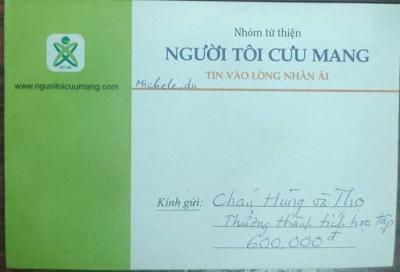 Nhóm từ thiện
NGƯỜI TÔI CƯU MANG
TIN VÀO LÒNG NHÂN ÁI
NTCM
www.nguoitoicuumang.com
Michele.du
Kính gửi: Cháu Hùng và Thọ
Thưởng thành tích học tập
600,000đ